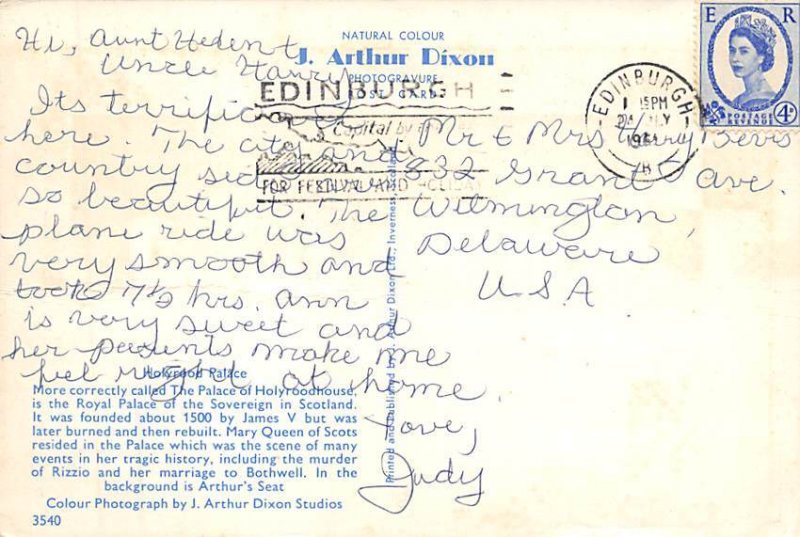 NATURAL COLOUR
J. Arthur Dixon
PHOTOGRAVURE
POST CARD
E R
POSTAGE
REVENUE
4D
EDINBURGH
Capital by
FOR FESTIVAL AND HOLIDAY
EDINBURGH
15 PM
JLY
Hi, Aunt Helen &
Uncle Harry
Its terrific
here. The city and
country side are
so beautiful. The
plane ride was
very smooth and
took 7½ hrs. Ann
is very sweet and
her parents make me
feel right at home.
Love,
Judy
Mr & Mrs Harry Bevis
832 Grant Ave.
Wilmington,
Delaware
USA
Printed and published by J. Arthur Dixon Ltd., Inverness, Scotland
Holyrood Palace
More correctly called The Palace of Holyroodhouse,
is the Royal Palace of the Sovereign in Scotland.
It was founded about 1500 by James V but was
later burned and then rebuilt. Mary Queen of Scots
resided in the Palace which was the scene of many
events in her tragic history, including the murder
of Rizzio and her marriage to Bothwell. In the
background is Arthur's Seat
Colour Photograph by J. Arthur Dixon Studios
3540